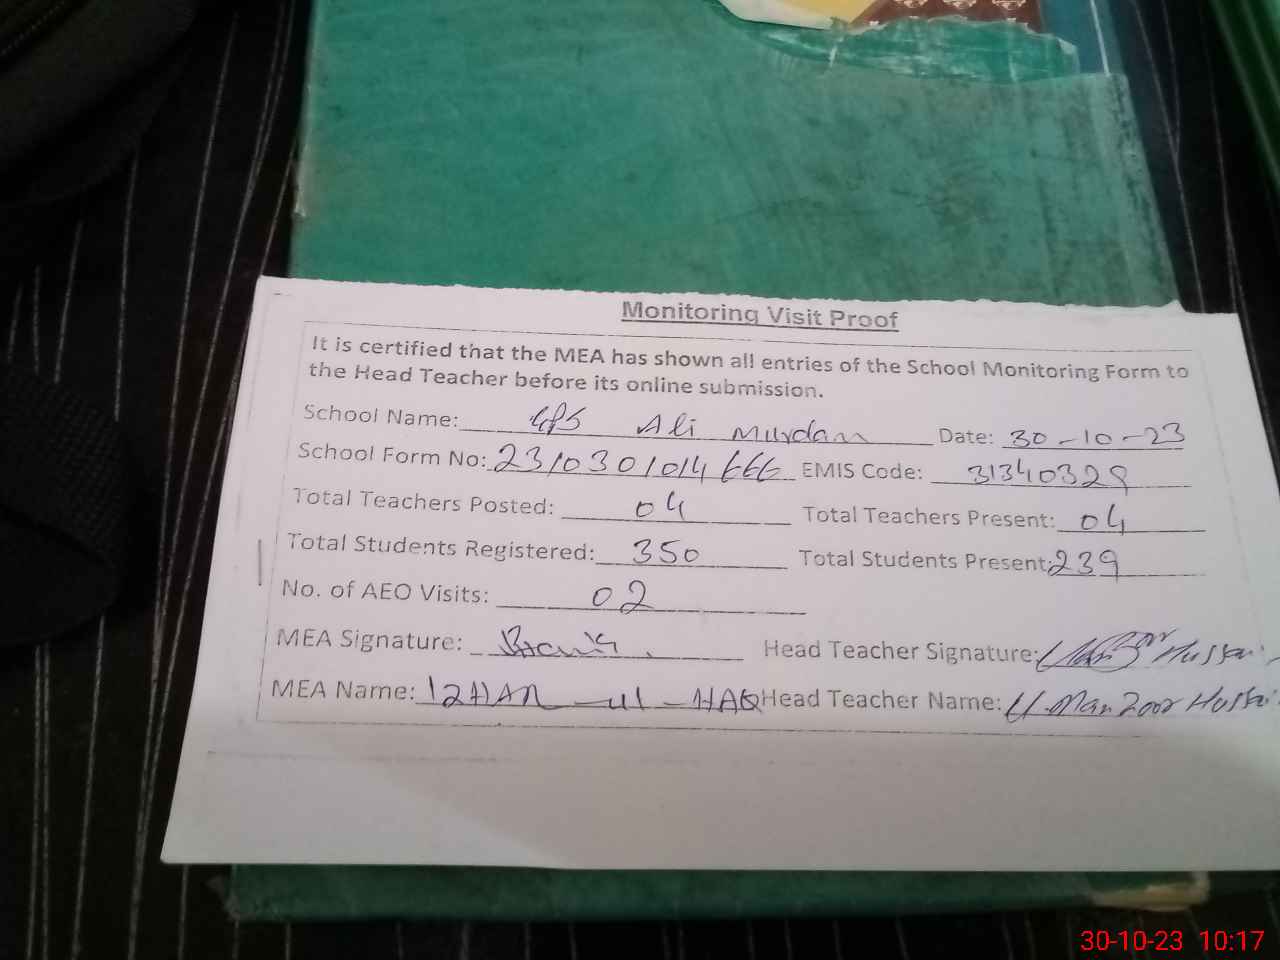 Monitoring Visit Proof
It is certified that the MEA has shown all entries of the School Monitoring Form to
the Head Teacher before its online submission.
School Name: GPS Ali Murdan Date: 30-10-23
School Form No: 2310301014666 EMIS Code: 31340329
Total Teachers Posted: 04 Total Teachers Present: 04
Total Students Registered: 350 Total Students Present: 239
No. of AEO Visits: 02
MEA Signature: Head Teacher Signature:
MEA Name: IZHAR-ul-HAQ Head Teacher Name: Manzoor Hussai
30-10-23 10:17